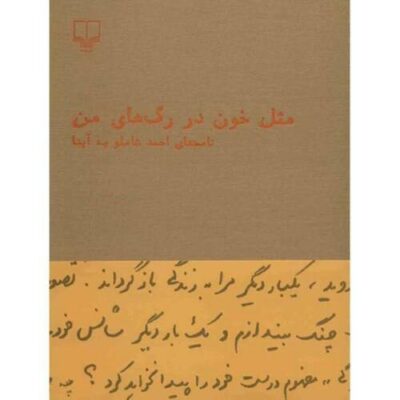 مثل خون در رگ‌های من
نامه‌های احمد شاملو به آیدا
روید، یکبار دیگر مرا به زندگی بازگرداند. تصو
چنگ بیندازم و یک بار دیگر شانس خود
مفهوم درست خود را پیدا نخواهد کرد؟ چه